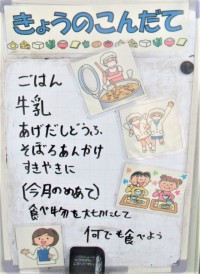 きょうのこんだて
ごはん
牛乳
あげだしどうふ
そぼろあんかけ
すきやきに
(今月のめあて)
食べ物を大切にして
何でも食べよう